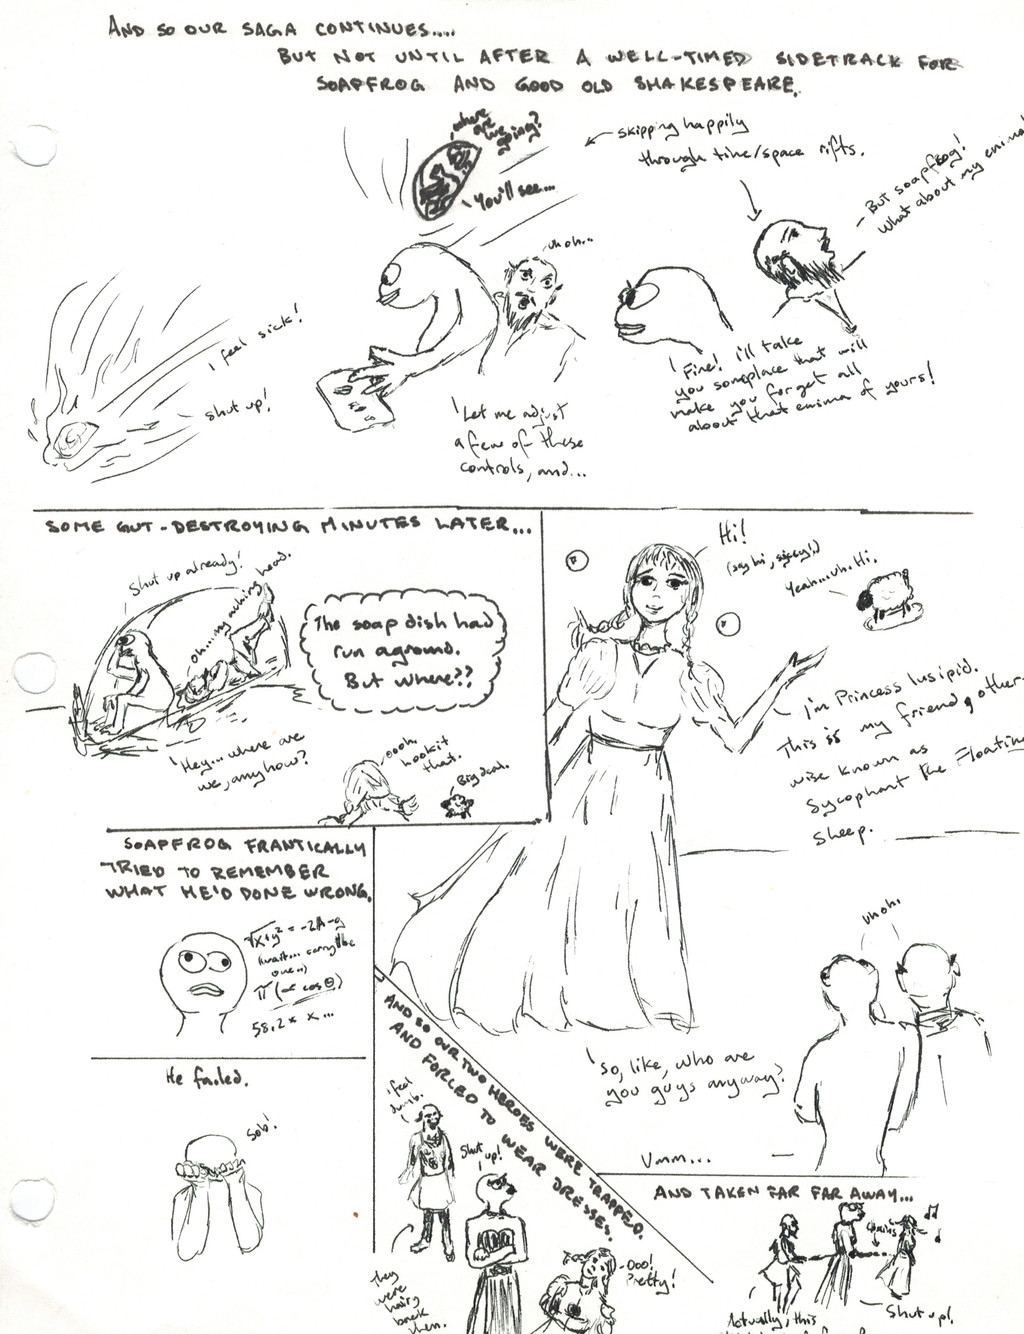 AND SO OUR SAGA CONTINUES.....
BUT NOT UNTIL AFTER A WELL-TIMED SIDETRACK FOR
SOAPFROG AND GOOD OLD SHAKESPEARE.
where
are
we
going?
You'll see...
skipping happily
through time/space rifts.
I feel sick!
shut up!
uhoh...
Let me adjust
a few of these
controls, and...
But soapfrog!
what about my
Fine! I'll take
you someplace that will
make you forget all
about that enima of yours!
SOME GUT-DESTROYING MINUTES LATER...
Shut up already!
Oh...my aching head.
The soap dish had
run aground.
But where??
Hey...where are
we, anyhow?
oooh.
lookit
that.
Big deal.
Hi!
(say hi, sissy!)
Yeah...uh. Hi.
I'm Princess Insipid.
This is my friend, other-
wise known as
Sycophant the Floating
Sheep.
uhoh.
So, like, who are
you guys anyway?
Umm...
SOAPFROG FRANTICALLY
TRIED TO REMEMBER
WHAT HE'D DONE WRONG.
(wait... carry the
one...)
58.2 x x...
He failed.
Sob!
AND SO OUR TWO HEROES WERE TRAPPED
AND FORCED TO WEAR DRESSES.
I feel
dumb.
Shut up!
they
were
hairy
back
then.
Ooo!
Pretty!
AND TAKEN FAR FAR AWAY...
chains
Shut up!
Actually, this